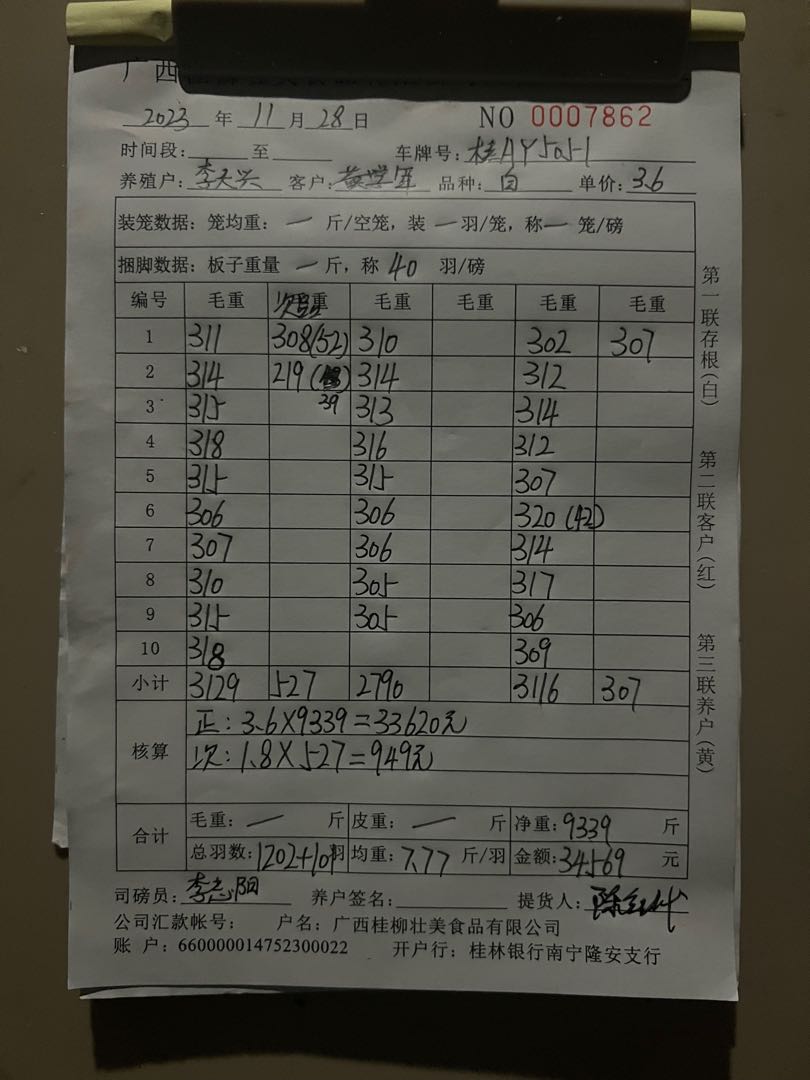 广西
2023 年 11 月 28 日 NO 0007862
时间段: 至 车牌号: 桂AY5051
养殖户: 李天兴 客户: 黄世军 品种: 白 单价: 3.6
装笼数据: 笼均重: 一 斤/空笼, 装 一 羽/笼, 称 一 笼/磅
捆脚数据: 板子重量 一 斤, 称 40 羽/磅
编号 毛重 重 毛重 毛重 毛重 毛重
1 311 308(52) 310 302 307
2 314 219 ( ) 314 312
3 315 39 313 314
4 318 316 312
5 315 315 307
6 306 306 320 (42)
7 307 306 314
8 310 305 317
9 315 305 306
10 318 309
小计 3129 527 2790 3116 307
核算
正: 3.6×9339=33620元
次: 1.8×527=949元
合计
毛重: 一 斤 皮重: 一 斤 净重: 9339 斤
总羽数: 1202+ 羽 均重: 7.77 斤/羽 金额: 34569 元
司磅员: 李志阳 养户签名: 提货人:
公司汇款帐号: 户名: 广西桂柳壮美食品有限公司
账 户: 660000014752300022 开户行: 桂林银行南宁隆安支行
第一联存根(白)
第二联客户(红)
第三联养户(黄)